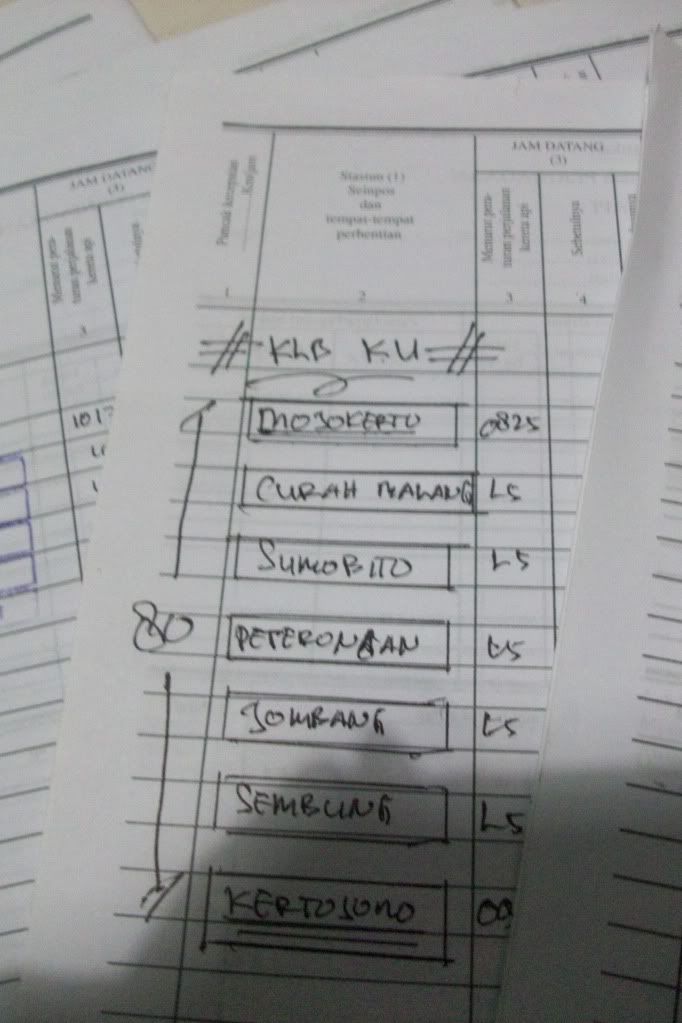 JAM DATANG
(3)
Menurut pera-
turan perjalanan
kereta api
3
1017
JAM DATANG
(3)
Puncak kecepatan
Km/jam
Stasiun (1)
Sempos
dan
tempat-tempat
perhentian
Menurut pera-
turan perjalanan
kereta api
Sebetulnya
1
2
3
4
KLB KU
MOJOKERTO 0825
CURAH MALANG LS
SUMOBITO LS
80 PETERONGAN LS
JOMBANG LS
SEMBUNG LS
KERTOSONO 09